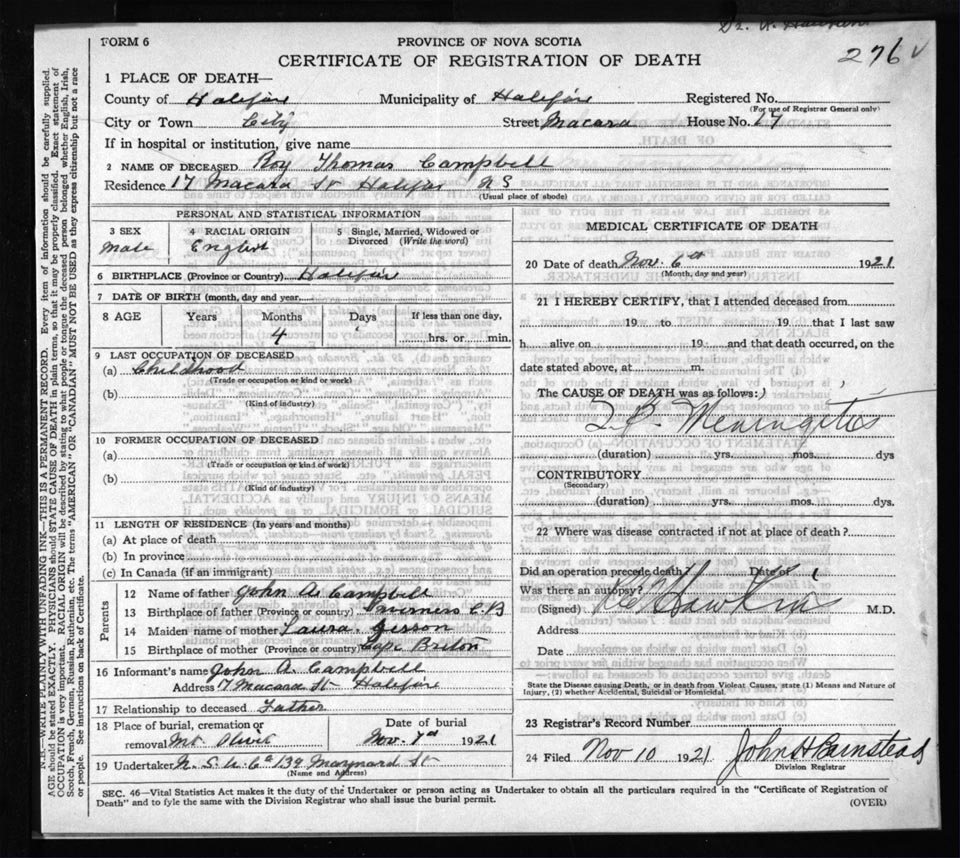 Dr. W.
276 ✓
FORM 6
PROVINCE OF NOVA SCOTIA
CERTIFICATE OF REGISTRATION OF DEATH
1 PLACE OF DEATH—
County of Halifax Municipality of Halifax Registered No.
(For use of Registrar General only)
City or Town City Street Macara House No. 17
If in hospital or institution, give name
2 NAME OF DECEASED Roy Thomas Campbell
Residence 17 Macara St Halifax N S
(Usual place of abode)
PERSONAL AND STATISTICAL INFORMATION
3 SEX 4 RACIAL ORIGIN 5 Single, Married, Widowed or Divorced (Write the word)
Male English
6 BIRTHPLACE (Province or Country) Halifax
7 DATE OF BIRTH (month, day and year)
8 AGE Years Months Days If less than one day,
4
hrs. or min.
9 LAST OCCUPATION OF DECEASED
(a) Childhood
(Trade or occupation or kind or work)
(b)
(Kind of industry)
10 FORMER OCCUPATION OF DECEASED
(a)
(Trade or occupation or kind or work)
(b)
(Kind of industry)
11 LENGTH OF RESIDENCE (In years and months)
(a) At place of death
(b) In province
(c) In Canada (if an immigrant)
Parents
12 Name of father John A. Campbell
13 Birthplace of father (Province or country) Inverness C.B
14 Maiden name of mother Laura
15 Birthplace of mother (Province or country) Cape Breton
16 Informant's name John A. Campbell
Address 17 Macara St Halifax
17 Relationship to deceased Father
18 Place of burial, cremation or removal Mt. Olivet
Date of burial
Nov. 7th 1921
19 Undertaker N. S. U. Co 139 Maynard St
(Name and Address)
MEDICAL CERTIFICATE OF DEATH
20 Date of death Nov. 6th 1921
(Month, day and year)
21 I HEREBY CERTIFY, that I attended deceased from
19 to 19 that I last saw
h alive on 19 and that death occurred, on the
date stated above, at m.
The CAUSE OF DEATH was as follows:
T.B. Meningitis
(duration) yrs. mos. dys
CONTRIBUTORY
(Secondary)
(duration) yrs. mos. dys.
22 Where was disease contracted if not at place of death?
Did an operation precede death? Date of
Was there an autopsy?
(Signed) Hawkins M.D.
Address
Date
State the Disease causing Death, or in death from Violent Causes, state (1) Means and Nature of
Injury, (2) whether Accidental, Suicidal or Homicidal.
23 Registrar's Record Number
24 Filed Nov 10 1921 John H Barnstead
Division Registrar
SEC. 46—Vital Statistics Act makes it the duty of the Undertaker or person acting as Undertaker to obtain all the particulars required in the "Certificate of Registration of
Death" and to fyle the same with the Division Registrar who shall issue the burial permit.
(OVER)
N.B.—WRITE PLAINLY WITH UNFADING INK—THIS IS A PERMANENT RECORD. Every item of information should be carefully supplied.
AGE should be stated EXACTLY. PHYSICIANS should STATE CAUSE OF DEATH in plain terms, so that it may be properly classified. Exact statement of
OCCUPATION is very important. RACIAL ORIGIN will be described by stating to what people or tongue the deceased person belonged whether English, Irish,
Scotch, French, German, Russian, Ruthenian, etc. The terms "AMERICAN" OR "CANADIAN" MUST NOT BE USED as they express citizenship but not a race
or people. See instructions on back of Certificate.